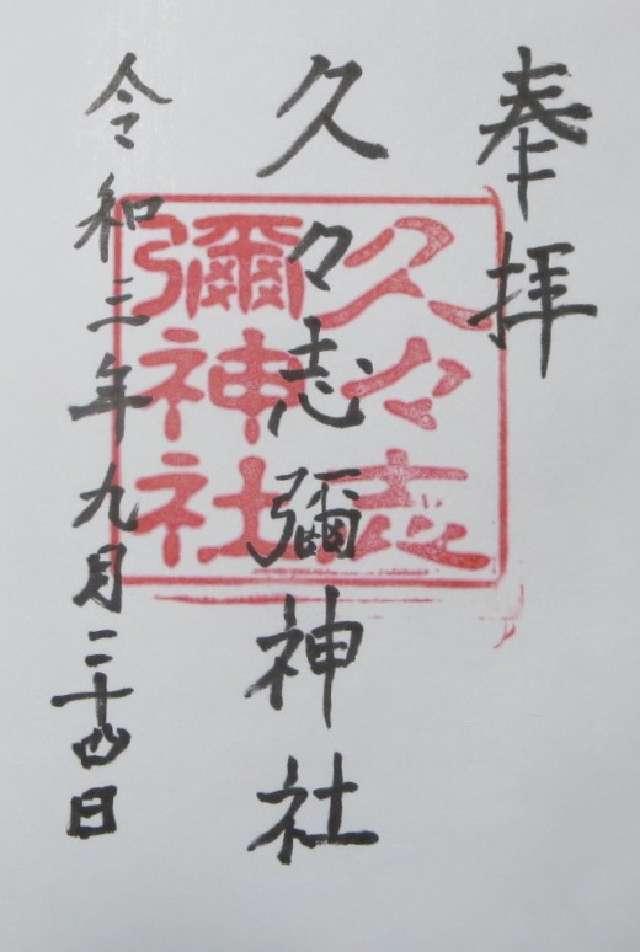 奉拝
久々志彌神社
令和三年九月二十四日
久々志
彌神社